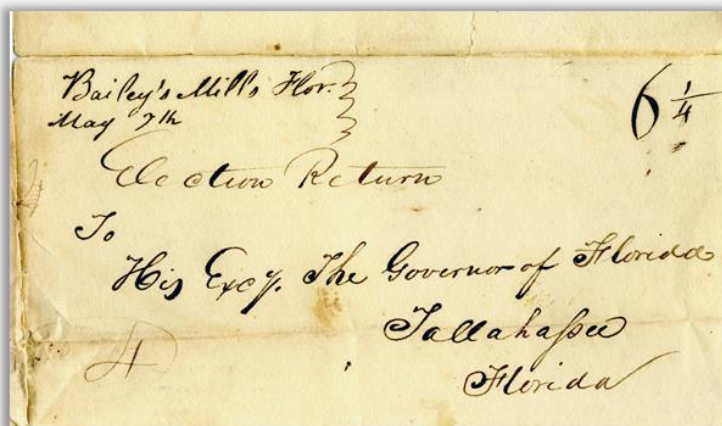 Bailey's Mills Flor.
May 7th
6 1/4
Election Return
To
His Excy. The Governor of Florida
Tallahassee
Florida